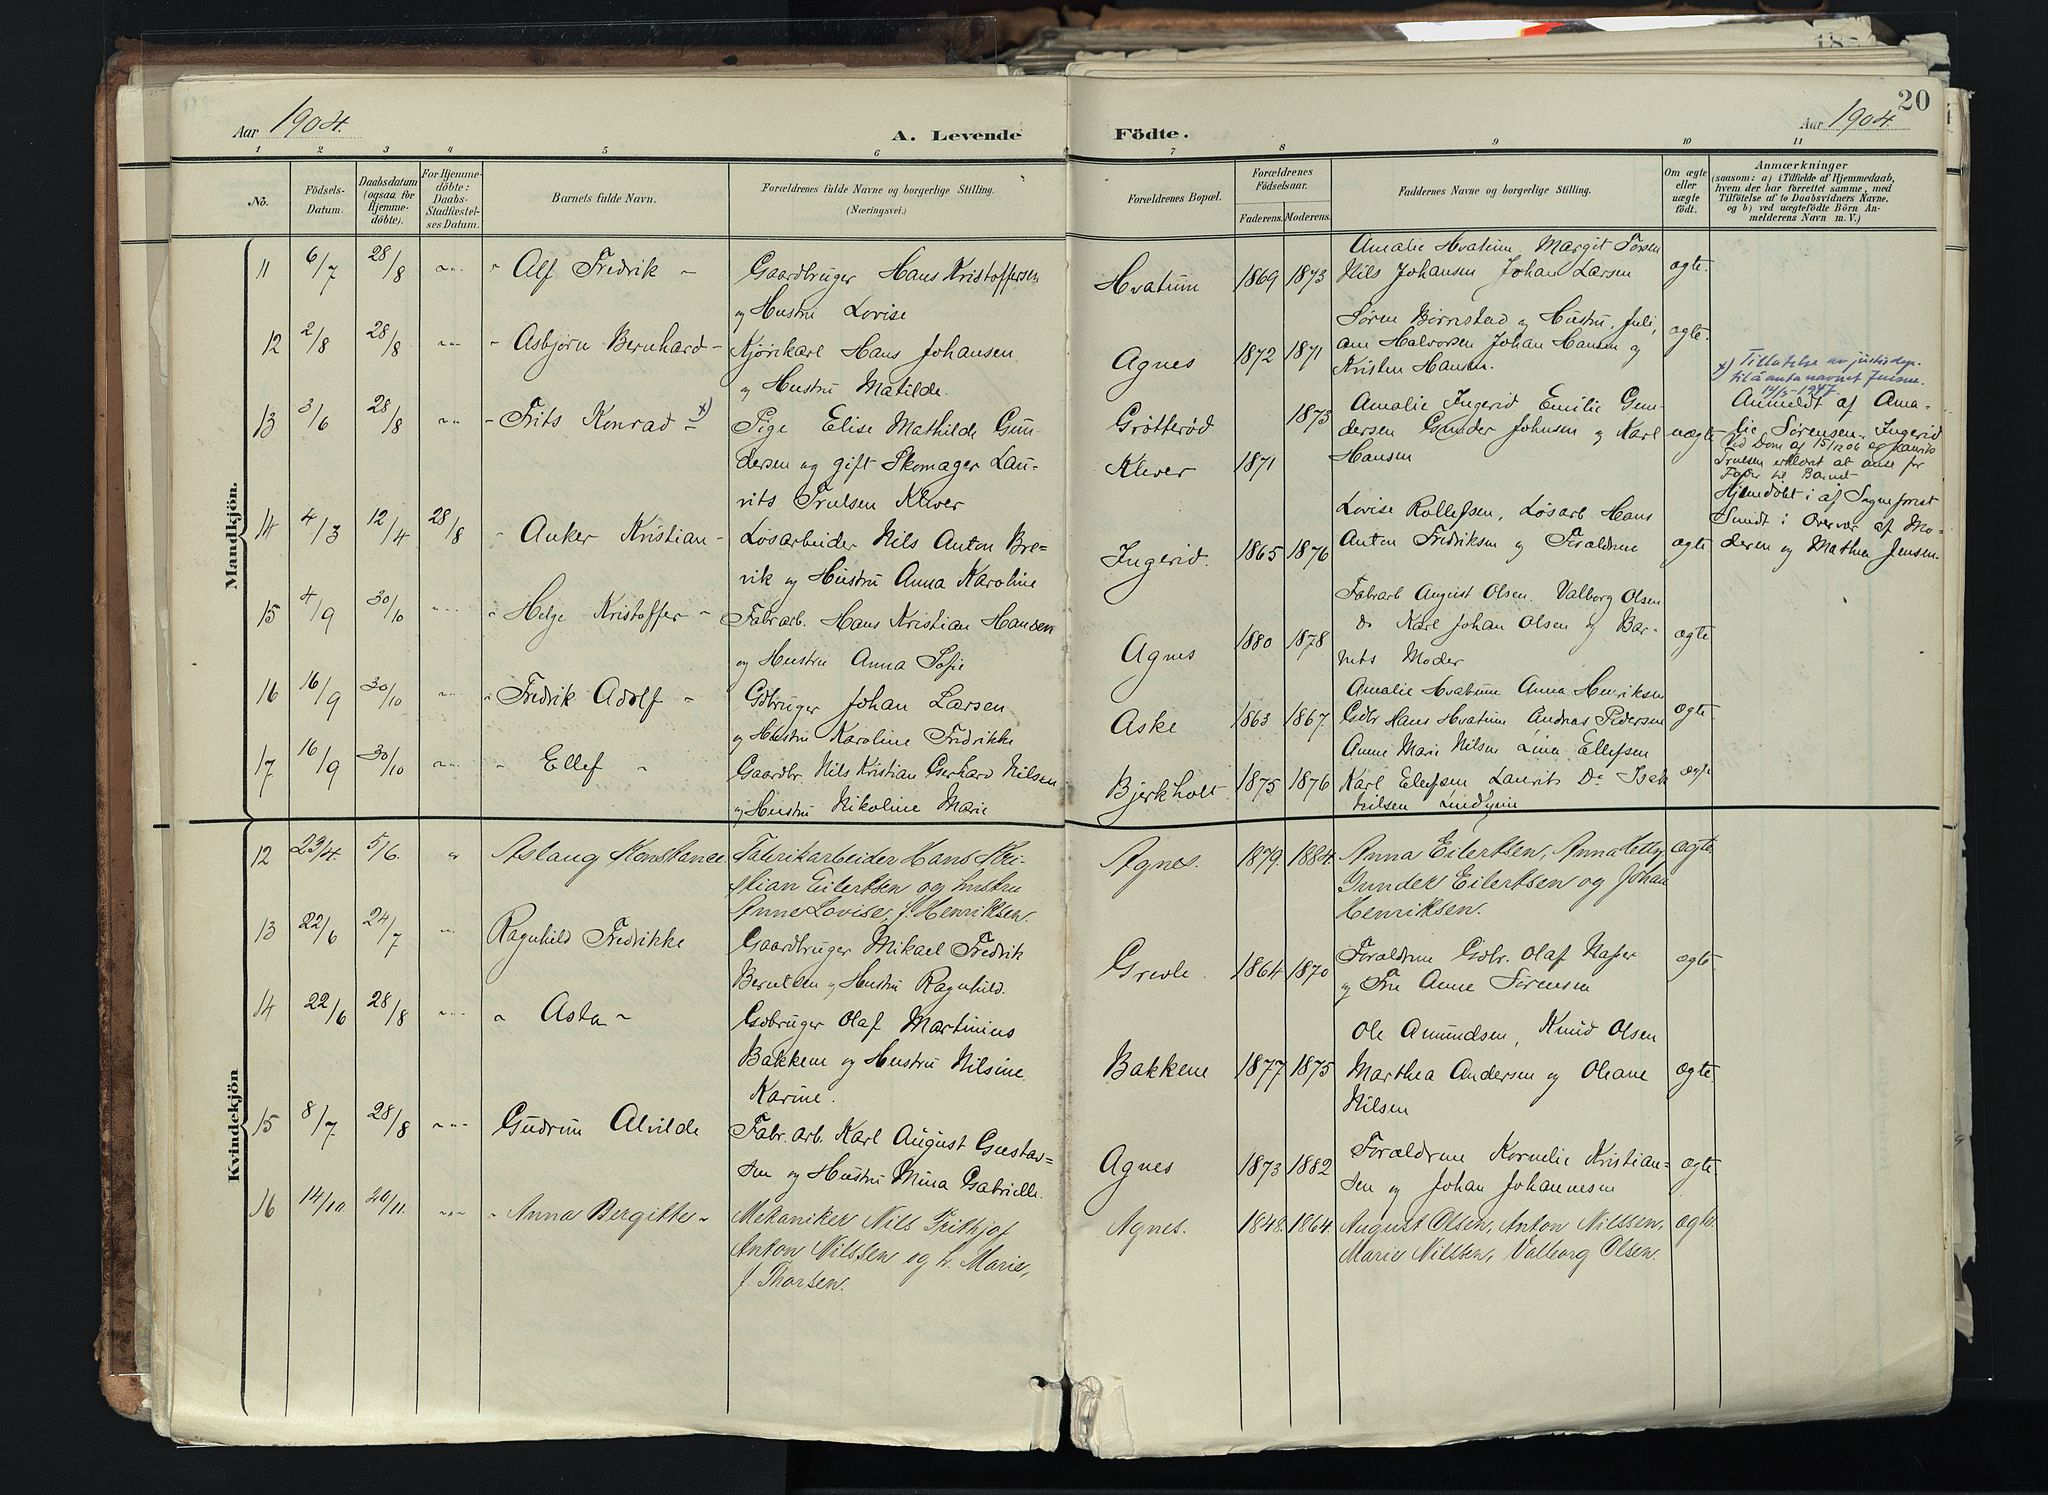 20
Aar 1904.
A. Levende Födte.
Aar 1904
1 2 3 4 5 6 7 8 9 10 11
No.
Födsels-
Datum.
Daabsdatum
(ogsaa for
Hjemme-
döbte).
For Hjemme-
döbte:
Daabs-
Stadfæstel-
ses Datum.
Barnets fulde Navn.
Forældrenes fulde Navne og borgerlige Stilling.
(Næringsvei.)
Forældrenes Bopæl.
Forældrenes
Födselsaar.
Faderens. Moderens.
Faddernes Navne og borgerlige Stilling.
Om ægte
eller
uægte
födt.
Anmærkninger
(saasom: a) i Tilfælde af Hjemmedaab,
hvem der har forrettet samme, med
Tilföielse af to Daabsvidners Navne.
og b) ved uægtefödte Börn An-
melderens Navn m. V.)
Mandkjön.
11 6/7 28/8 Alf Fredrik
Gaardbruger Hans Kristoffersen
og Hustru Lovise
Hvatum 1869 1873
Amalie Hvatum, Margit Torsen
Nils Johansen Johan Larsen
ægte.
12 2/8 28/8 Asbjørn Bernhard
Kjørikarl Hans Johansen
og Hustru Matilde.
Agnes 1872 1871
Søren Børrestad og Hustru, Juli,
ane Halvorsen Johan Hansen og
Kristen Hansen.
ægte.
x) Tillatelse av justisdep.
til å anta navnet
13 3/6 28/8 Frits Konrad x)
Pige Elise Mathilde Gun-
dersen og gift Skomager Lau-
rits Trulsen Klever
Grøtterød 1873
Klever 1871
Amalie Ingerid Emilie Gun-
dersen Gunder Johnsen og Karl
Hansen
uægte
Anmeldt af Ama-
lie Sørensen Ingerid
Vid Dom af 15/12 06 er Laurits
Trulsen erklæret at anse for
Fader til Barnet
14 4/3 12/4 28/8 Anker Kristian
Løsarbeider Nils Anton Bre-
vik og Hustru Anna Karoline
Ingerid. 1865 1876
Lovise Rollefsen, Løsarb. Hans
Anton Fredriksen og Forældrene
ægte
Hjemdøbt i af Sogneprest
Smidt i Overvær af Mo-
deren og Mathea Jensen.
15 4/9 30/10 Helge Kristoffer
Fabrarb. Hans Kristian Hansen
og Hustru Anna Sofie
Agnes 1880 1878
Fabrarb August Olsen. Valborg Olsen
Do Karl Johan Olsen og Bar-
nets Moder
ægte
16 16/9 30/10 Fredrik Adolf
Gdbruger Johan Larsen
og Hustru Karoline Fredrikke
Aske 1863 1867
Amalie Hvatum Anna Henriksen
Gdbr Hans Hvatum Andreas Pedersen
ægte.
17 16/9 30/10 Ellef
Gaardbr Nils Kristian Gerhard Nilsen
og Hustru Nikoline Marie
Bjerkholt. 1875 1876
Anne Marie Nilsen Lina Ellefsen
Karl Ellefsen Laurits Do
Nilsen
ægte
Kvindekjön
12 23/4. 5/6. Aslaug Konstance
Fabrikarbeider Hans Kri-
stian Eilertsen og hustru
Anne Lovise, f. Henriksen.
Agnes. 1879. 1884.
Anna Eilertsen, Anna Hetty
Gunder Eilertsen og Johan
Henriksen.
ægte.
13 22/6 24/7 Ragnhild Fredrikke
Gaardbruger Mikael Fredrik
Berntsen og Hustru Ragnhild.
Grevle. 1864 1870
Forældrene Gdbr. Olaf Næper
og Frue Anne Sørensen
ægte.
14 22/6 28/8 Asta
Gdbruger Olaf Martinius
Bakkene og Hustru Nilsine
Karine.
Bakkene 1877 1875
Ole Amundsen, Knud Olsen
Marthea Andersen og Oleane
Nilsen
ægte.
15 8/7 28/8 Gudrun Alvilde
Fabr. arb. Karl August Gustav-
sen og Hustru Mina Gabrielle.
Agnes 1873 1882
Forældrene Kornelie Kristian-
sen og Johan Johannesen
ægte.
16 14/10 20/11. Anna Bergitte
Mekaniker Nils Frithjof
Anton Nilssen og h. Marie,
f. Thorsen.
Agnes. 1848. 1864.
August Olsen, Anton Nilssen,
Marie Nilssen, Valborg Olsen.
ægte.